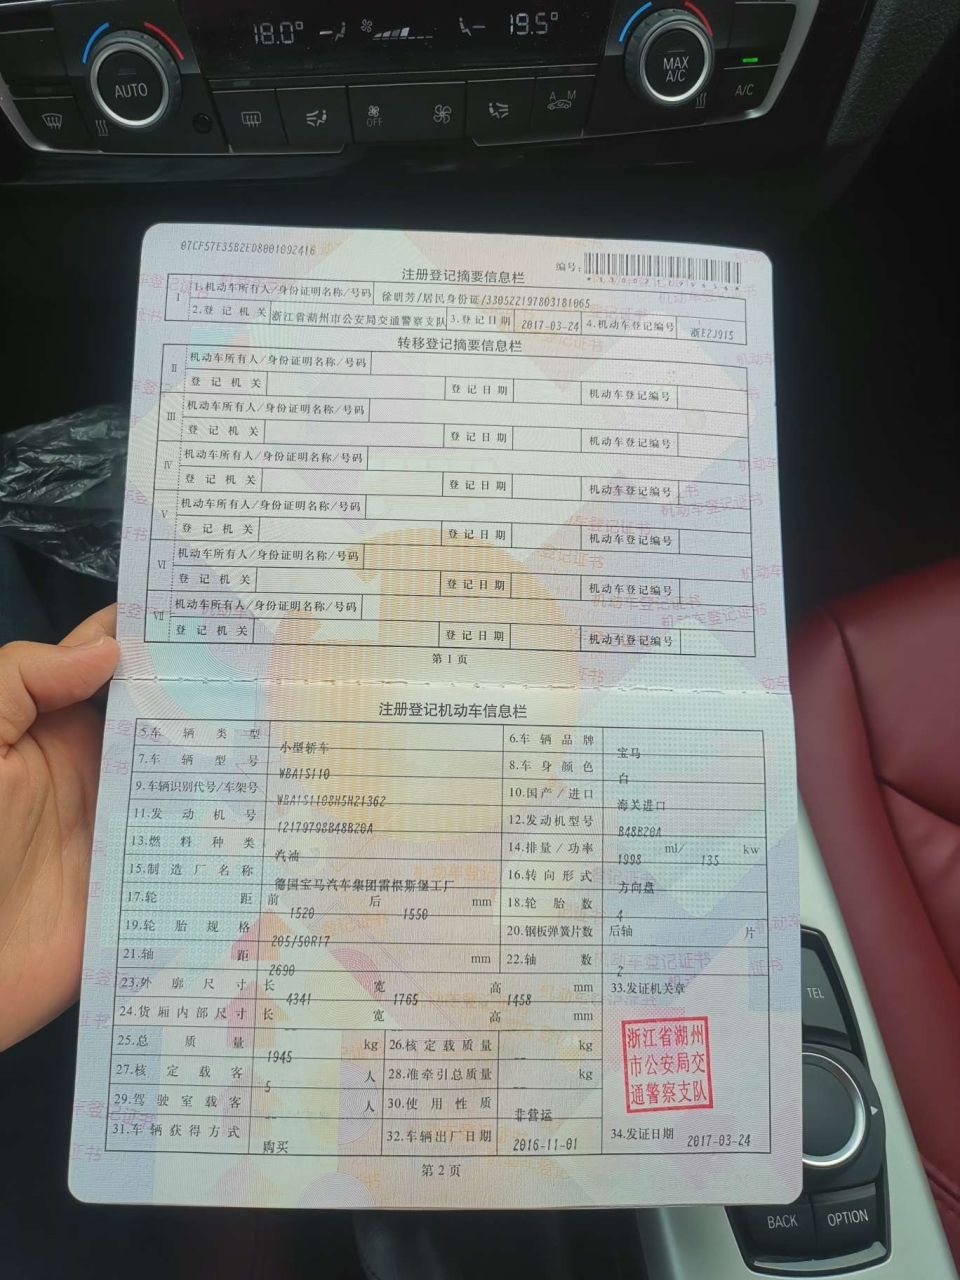 18.0° 19.5°
AUTO
MAX
A/C
A/C
OFF
A M
07CF57E35B2ED8001092416
编号:
注册登记摘要信息栏
I 1.机动车所有人/身份证明名称/号码 徐明芳/居民身份证/330522197803181065
2.登记机关 浙江省湖州市公安局交通警察支队 3.登记日期 2017-03-24 4.机动车登记编号 浙E2J915
转移登记摘要信息栏
II 机动车所有人/身份证明名称/号码
登记机关 登记日期 机动车登记编号
III 机动车所有人/身份证明名称/号码
登记机关 登记日期 机动车登记编号
IV 机动车所有人/身份证明名称/号码
登记机关 登记日期 机动车登记编号
V 机动车所有人/身份证明名称/号码
登记机关 登记日期 机动车登记编号
VI 机动车所有人/身份证明名称/号码
登记机关 登记日期 机动车登记编号
VII 机动车所有人/身份证明名称/号码
登记机关 登记日期 机动车登记编号
第1页
注册登记机动车信息栏
5.车辆类型 小型轿车 6.车辆品牌 宝马
7.车辆型号 WBA1S110 8.车身颜色 白
9.车辆识别代号/车架号 WBA1S1108H5H21362 10.国产/进口 海关进口
11.发动机号 12179798B48B20A 12.发动机型号 B48B20A
13.燃料种类 汽油 14.排量/功率 1998 ml/ 135 kw
15.制造厂名称 德国宝马汽车集团雷根斯堡工厂 16.转向形式 方向盘
17.轮距 前 1520 后 1550 mm 18.轮胎数 4
19.轮胎规格 205/50R17 20.钢板弹簧片数 后轴 片
21.轴距 2690 mm 22.轴数 2
23.外廓尺寸 长 4341 宽 1765 高 1458 mm 33.发证机关章
24.货厢内部尺寸 长 -- 宽 高 mm
浙江省湖州
市公安局交
通警察支队
25.总质量 1945 kg 26.核定载质量 -- kg
27.核定载客 5 人 28.准牵引总质量 -- kg
29.驾驶室载客 -- 人 30.使用性质 非营运
31.车辆获得方式 购买 32.车辆出厂日期 2016-11-01 34.发证日期 2017-03-24
第2页
TEL
BACK
OPTION